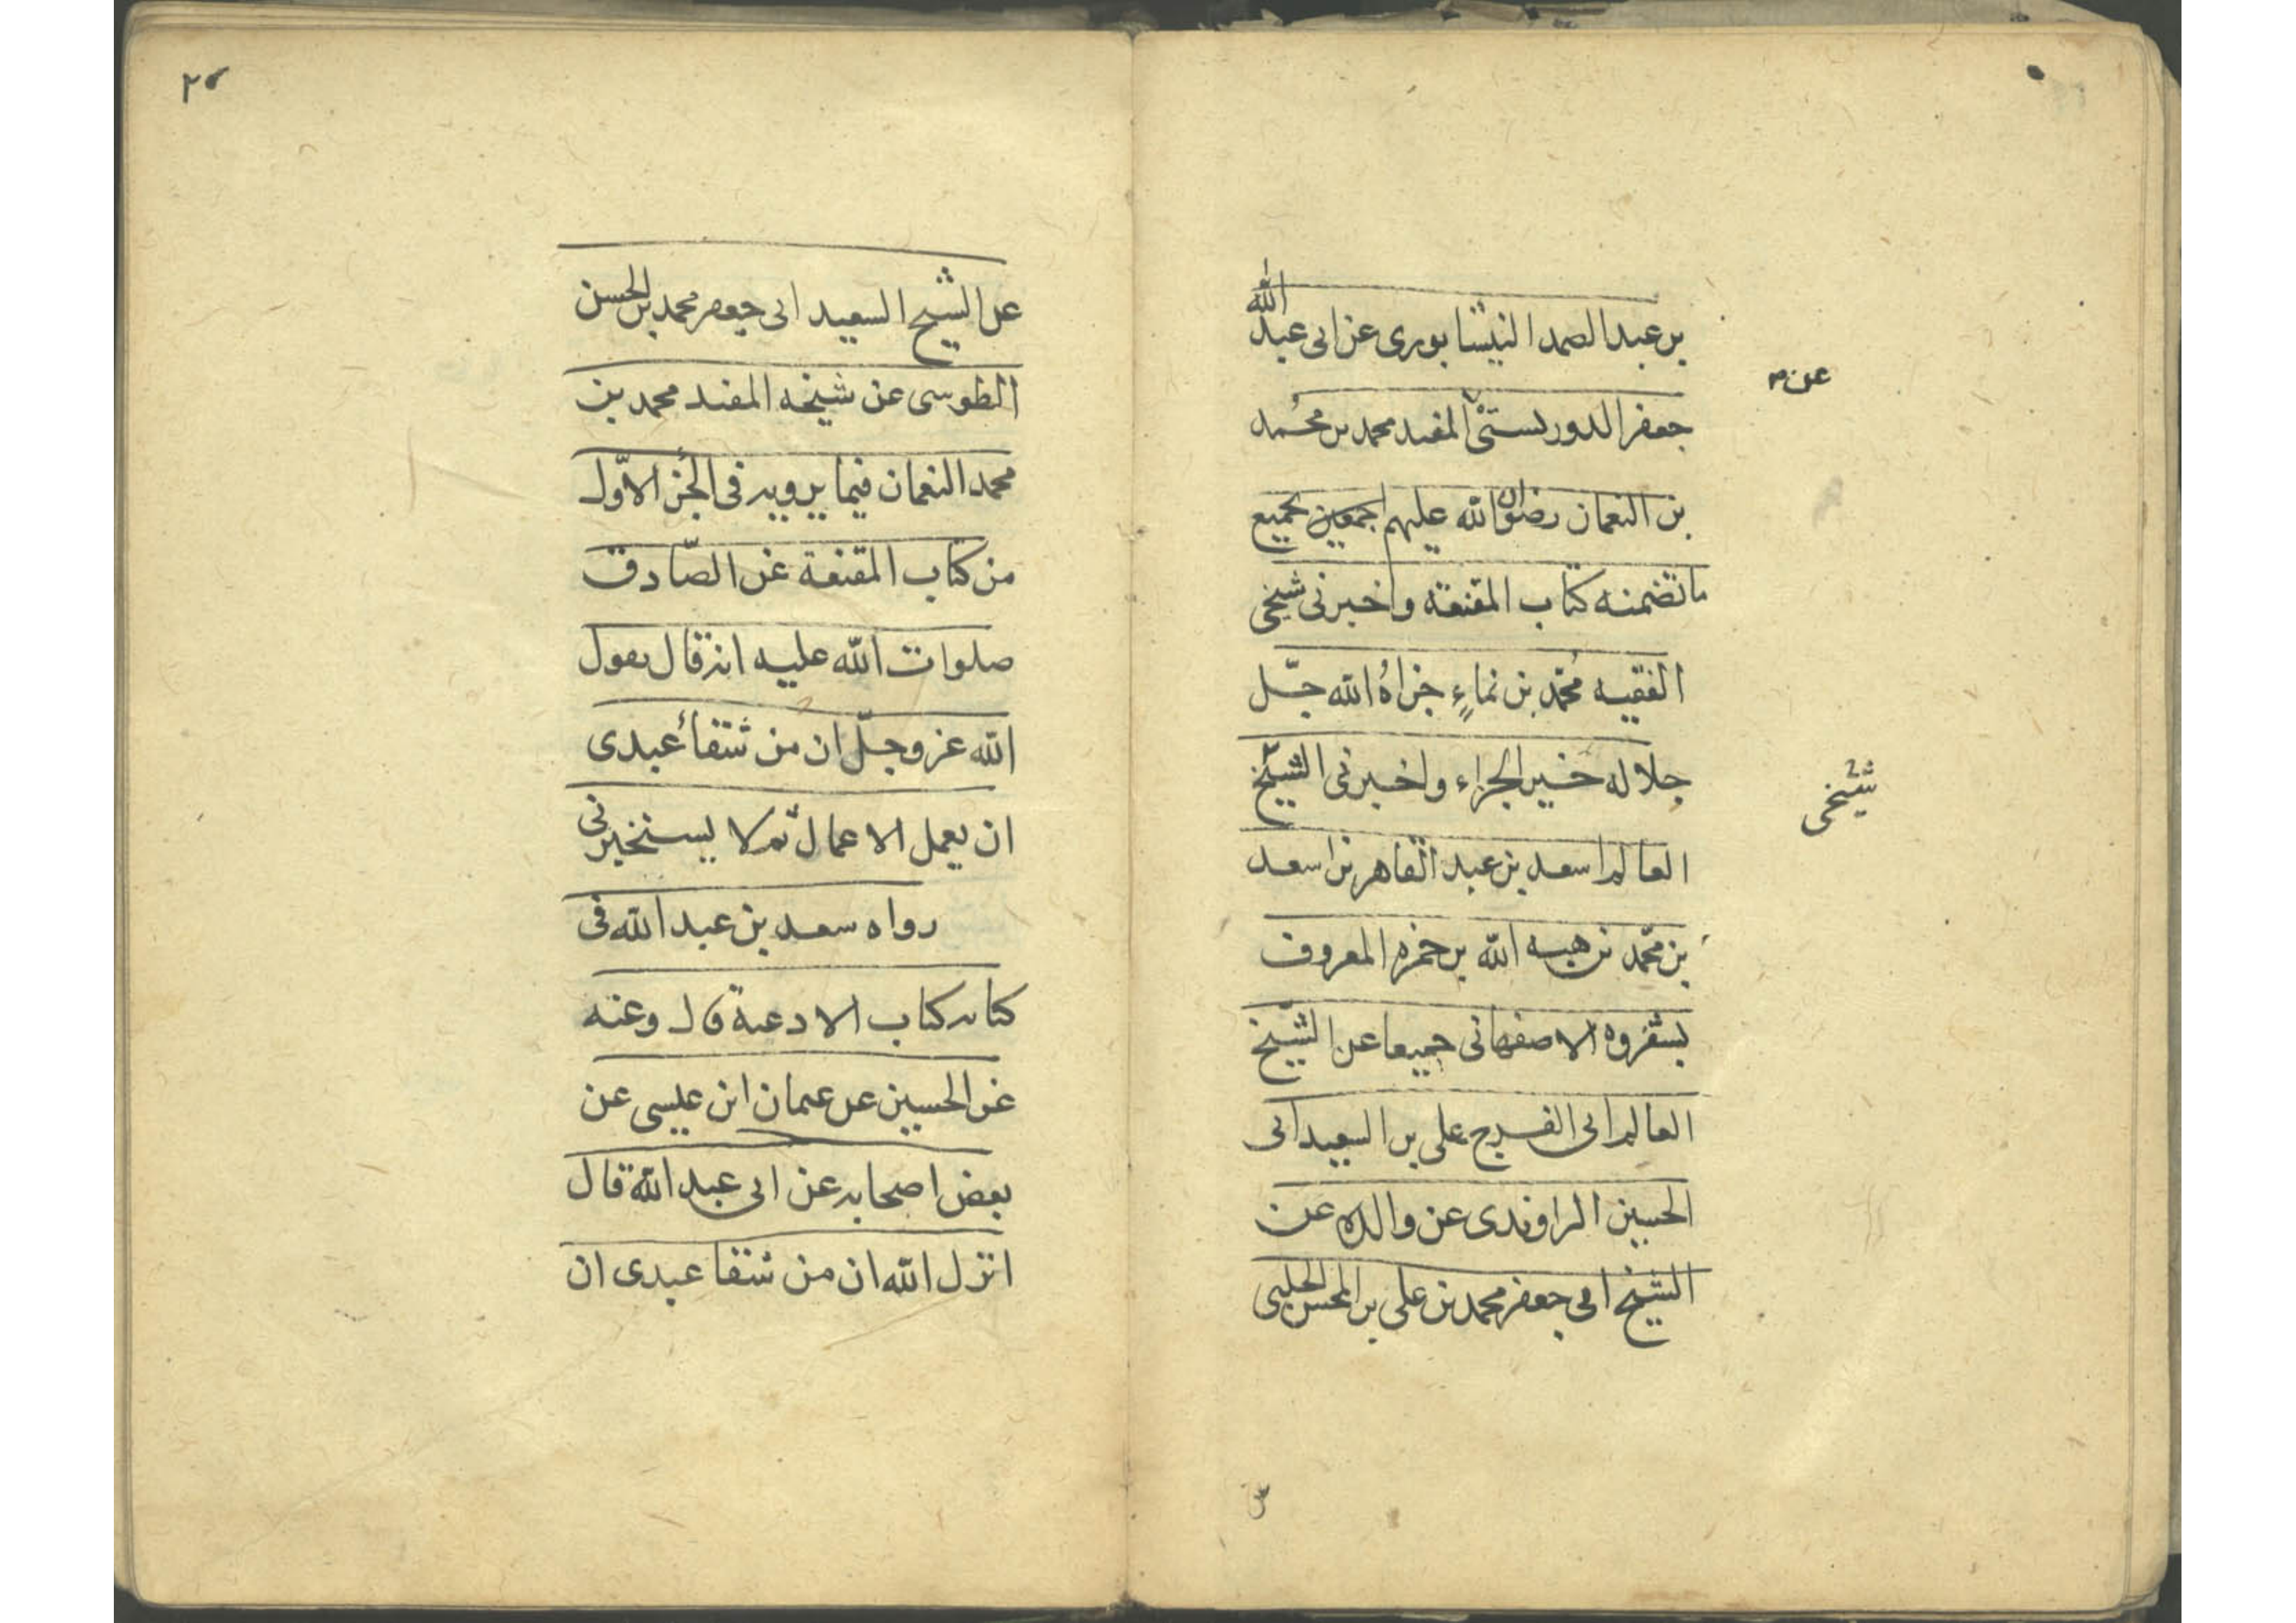 بن عبد الصمد النيشابورى عن ابى عبد الله
عن م
جعفر الدوريستى المفيد محمد بن محمد
بن النعمان رضوان الله عليهم اجمعين بجميع
ما تضمنه كتاب المقنعة واخبرنى شيخى
الفقيه محمد بن نماء جزاه الله جلّ
جلاله خير الجزاء واخبرنى الشيخ
شيخى
العالم اسعد بن عبد القاهر بن اسعد
بن محمد بن هبه الله بن حمزه المعروف
بشفروه الاصفهانى جميعا عن الشيخ
العالم ابى الفرج على بن السعيد ابى
الحسين الراوندى عن والده عن
الشيخ ابى جعفر محمد بن على بن المحسن الحلبى
عن
عن الشيخ السعيد ابى جعفر محمد بن الحسن
الطوسى عن شيخه المفيد محمد بن
محمد النعمان فيما يرويه فى الجزء الاوّل
من كتاب المقنعة عن الصّادق
صلوات الله عليه انه قال يقول
الله عز وجلّ ان من شقاء عبدى
ان يعمل الاعمال ثم لا يستخيرنى
رواه سعد بن عبد الله فى
كتابه كتاب الادعية قال وعنه
عن الحسين عن عثمان ابن عيسى عن
بعض اصحابه عن ابى عبد الله قال
انزل الله ان من شقا عبدى ان